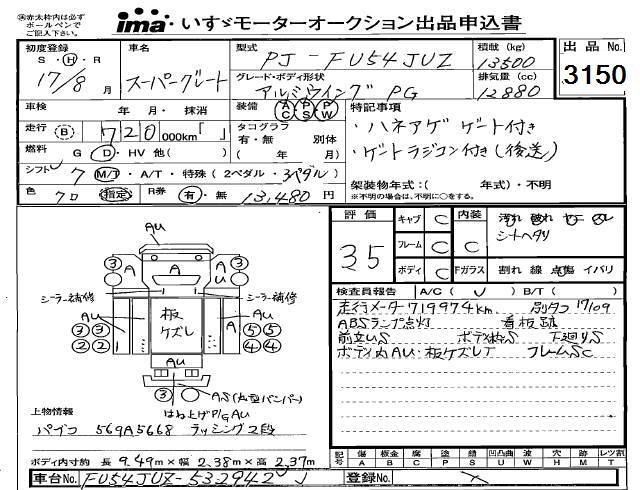 ㊟赤太枠内は必ず
ボールペンで
ご記入下さい。
ima いすゞモーターオークション出品申込書
初度登録 S・H・R 17/8 月
車名 スーパーグレート
型式 PJ-FU54JUZ
積載(kg) 13500
出品No. 3150
グレード・ボディ形状 アルミウイング PG
排気量(cc) 12880
車検 年・月・抹消
装備 AC PS PW
特記事項
・ハネアゲゲート付き
・ゲートラジコン付き(後送)
走行 (B) 720 000km「 」
タコグラフ 有・無 別体
( 年 月)
燃料 G・D・HV 他( )
シフト 7 M/T・A/T・特殊(2ペダル・3ペダル)
架装物年式:( 年式)・不明
※不明の場合は、不明に○をする。
色 クロ 指定 R券 有・無 13,480円
評価 35
キャブ C 内装 C 汚れ 破れ
シートヘタリ
フレーム C
ボディ C Fガラス 割れ 線 点傷 イバリ
検査員報告 A/C( ) B/T( )
走行メーター719974km 別タコ 17/109
ABSランプ点灯 看板跡
前立US ボディ枠S 下廻りS
ボディ内AU・板ケズレT フレームSC
AU
③ A A A ③
U
シーラー補修 シーラー補修
AU 板ケズレ AU
③③ A ⑤⑤
②② ④④
AU
③ AS(丸型バンパー)
はね上げP/G AU
上物情報
パブコ 569A5668 ラッシング2段
ボディ内寸約 長 9.49m×幅 2.38m×高 2.37m
記号 傷 A 板金 B 腐 C 塗 P 錆 S 凹凸曲 U 波 W 穴 H 跡 M レツ割 T
車台No. FU54JUZ-532942
登録No.